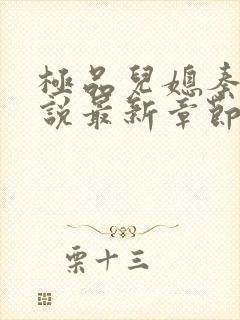 極品兒媳秦
說最新章節
栗十三